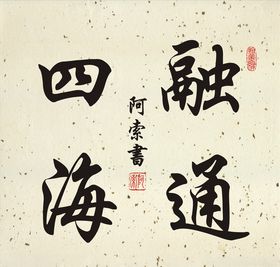 融通
四海
阿索書